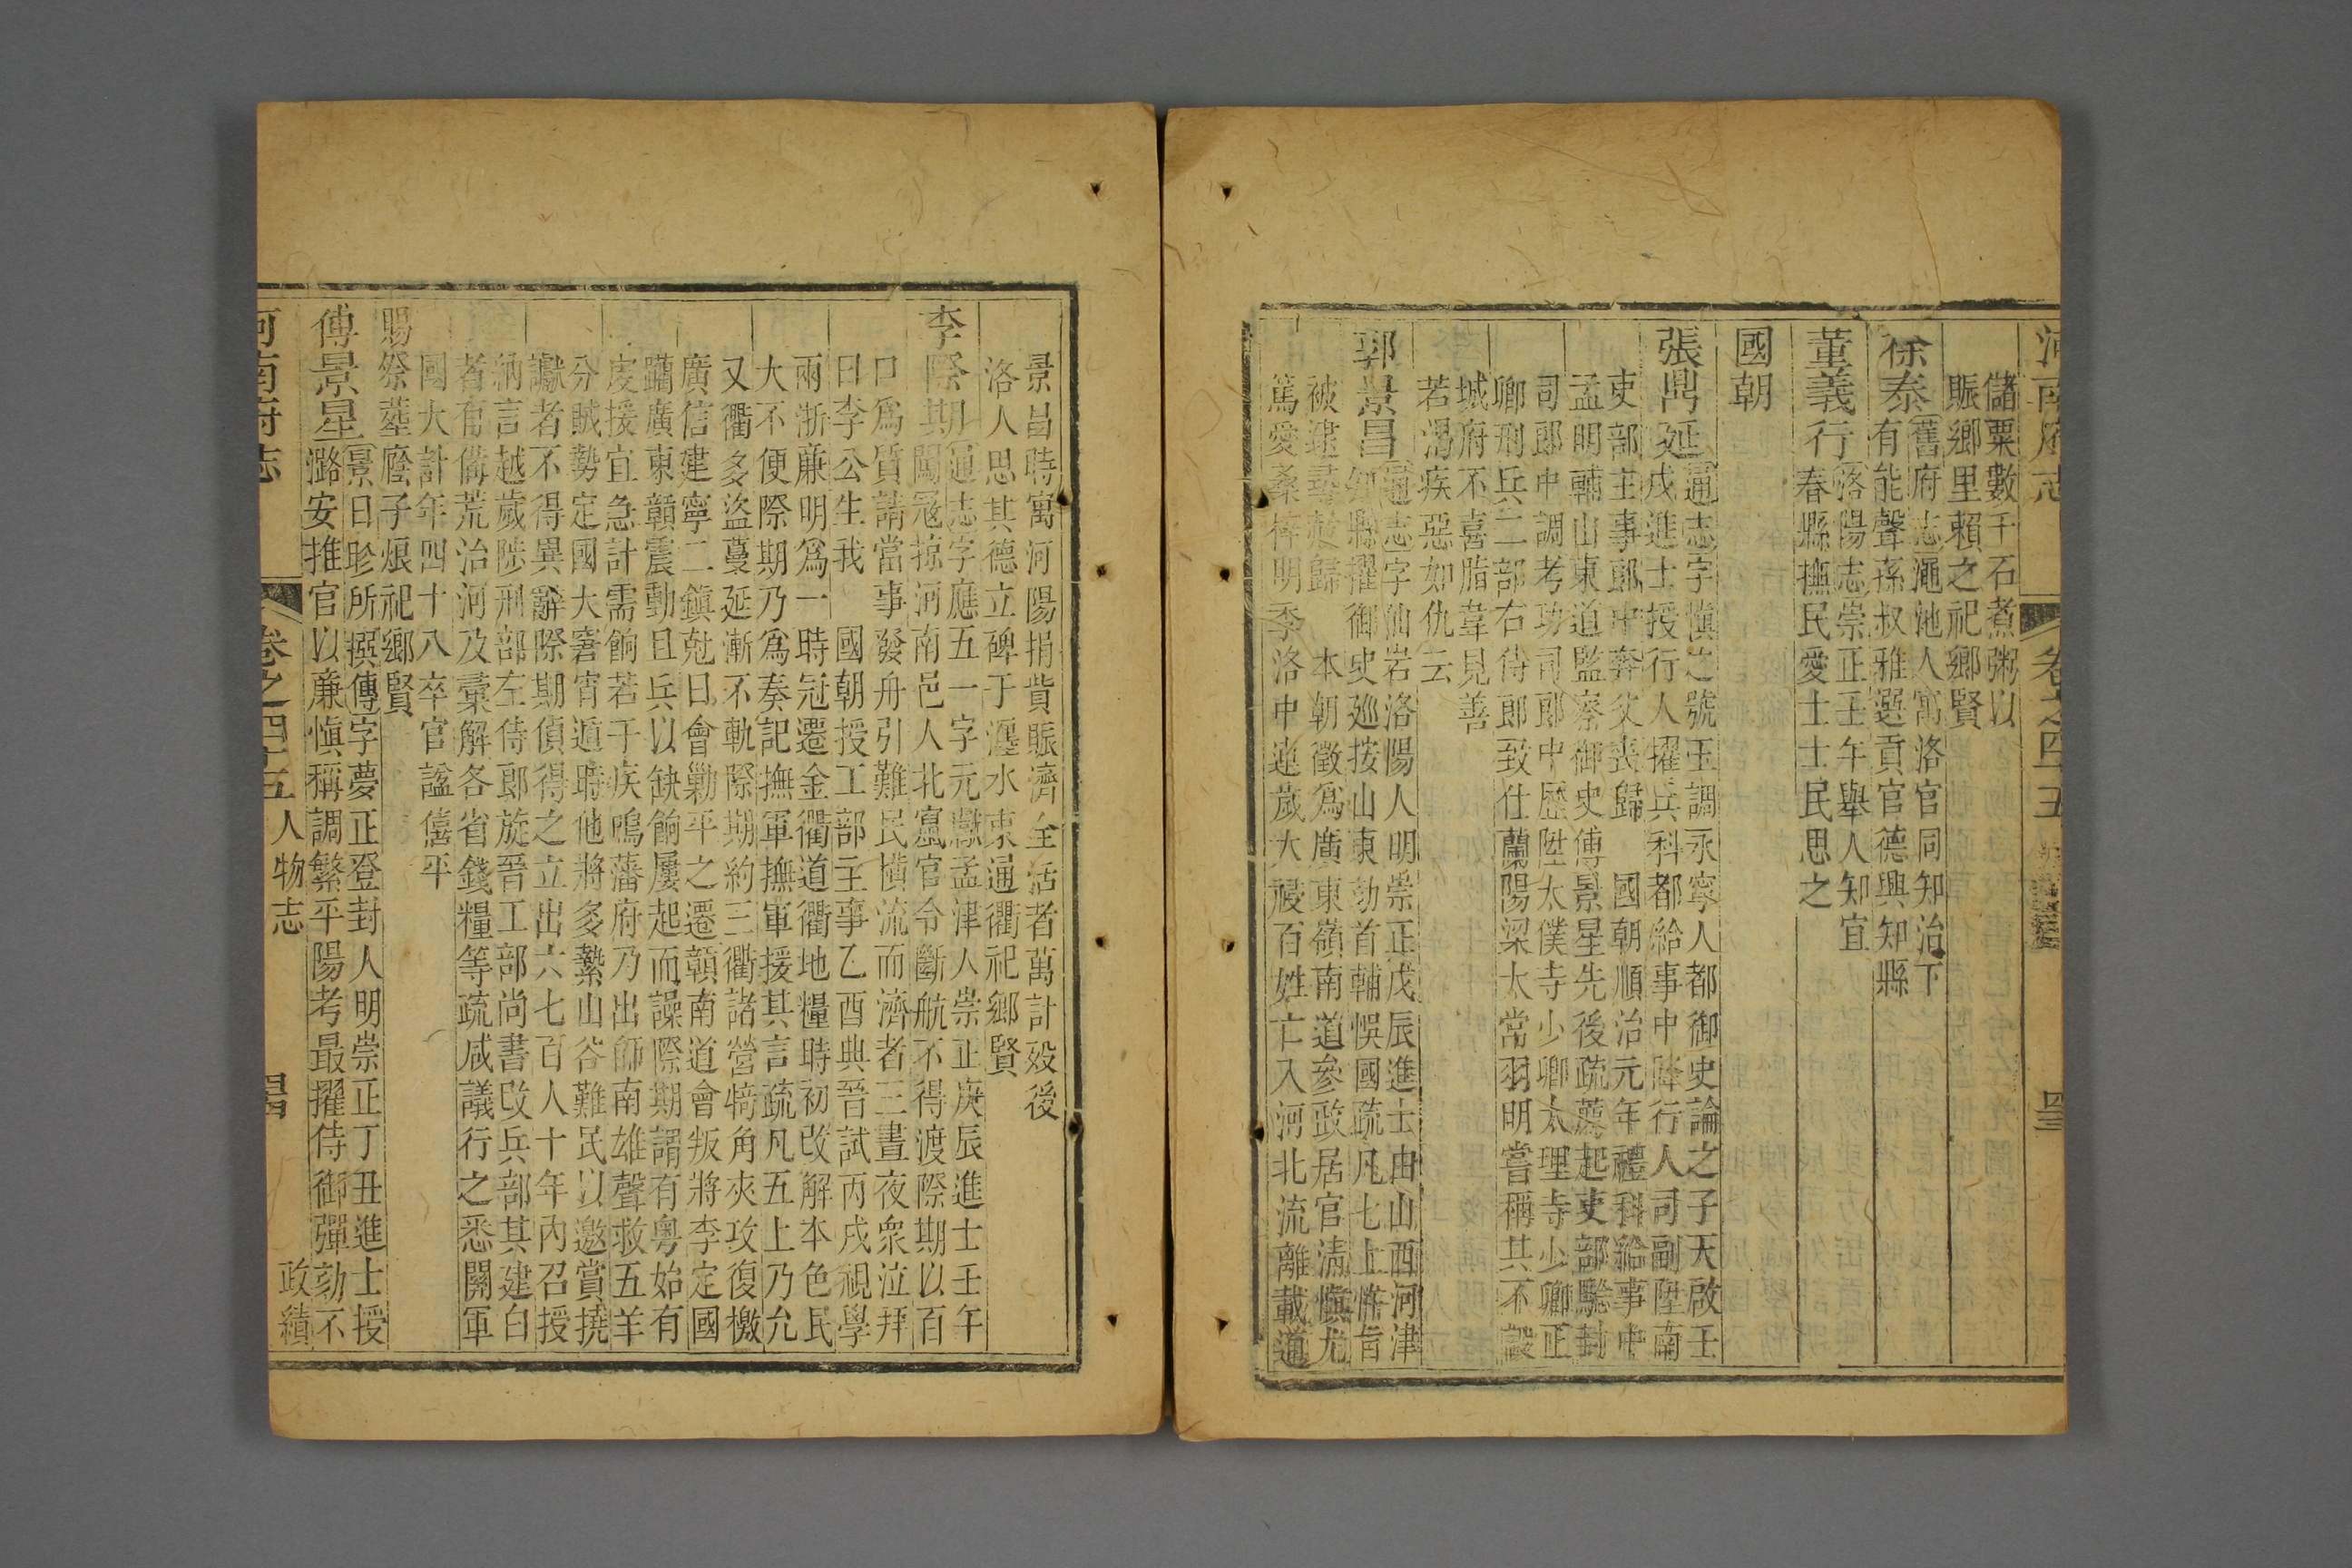 河南府志
卷之四十五
儲粟數千石煮粥以
賑鄉里賴之祀鄉賢
徐泰舊府志澠池人寓洛官同知治下
有能聲孫叔雅選貢官德興知縣
董義行洛陽志崇正壬午年舉人知宜
春縣撫民愛士士民思之
國朝
張鼎延通志字愼之號玉調永寧人都御史論之子天啟壬
戌進士授行人擢兵科都給事中降行人司副陞南
吏部主事郎中奔父喪歸 國朝順治元年禮科給事中
孟明輔山東道監察御史傅景星先後疏薦起吏部驗封
司郎中調考功司郎中歷陞太僕寺少卿太理寺少卿正
卿刑兵二部右侍郎致仕蘭陽梁太常羽明嘗稱其不設
城府不喜脂韋見善
若渴疾惡如仇云
郭景昌通志字仙岩洛陽人明崇正戊辰進士由山西河津
知縣擢御史廵按山東劾首輔悞國疏凡七上忤旨
被逮尋放歸 本朝徵爲廣東嶺南道參政居官清愼尤
篤愛桑梓明季洛中連歲大祲百姓亡入河北流離載道
景昌時寓河陽捐貲賑濟全活者萬計歿後
洛人思其德立碑于瀍水東通衢祀鄉賢
李際期通志字應五一字元嶽孟津人崇正庚辰進士壬午
闖冦掠河南邑人北竄官令斷航不得渡際期以百
口爲質請當事發舟引難民橫流而濟者三晝夜衆泣拜
曰李公生我 國朝授工部主事乙酉典晉試丙戌視學
兩浙亷明爲一時冠遷金衢道衢地糧時初改解本色民
大不便際期乃爲奏記撫軍撫軍援其言疏凡五上乃允
又衢多盜蔓延漸不軌際期約三衢諸營犄角夾攻復檄
廣信建寧二鎮尅日會勦平之遷贛南道會叛將李定國
躪廣東贛震動且兵以缺餉屢起而譟際期謂有粵始有
虔援宜急計需餉若干疾鳴藩府乃出師南雄聲救五羊
分賊勢定國大窘宵遁時他將多縶山谷難民以邀賞撓
讞者不得異辭際期偵得之立出六七百人十年內召授
納言越歲陟刑部左侍郎旋晉工部尚書改兵部其建白
者有備荒治河及彙解各省錢糧等疏咸議行之悉關軍
國大計年四十八卒官諡僖平
賜祭葬廕子烺祀鄉賢
傅景星景日昣所撰傳字夢正登封人明崇正丁丑進士授
潞安推官以亷愼稱調繁平陽考最擢侍御彈劾不
河南府志
卷之四十五
人物志
政績